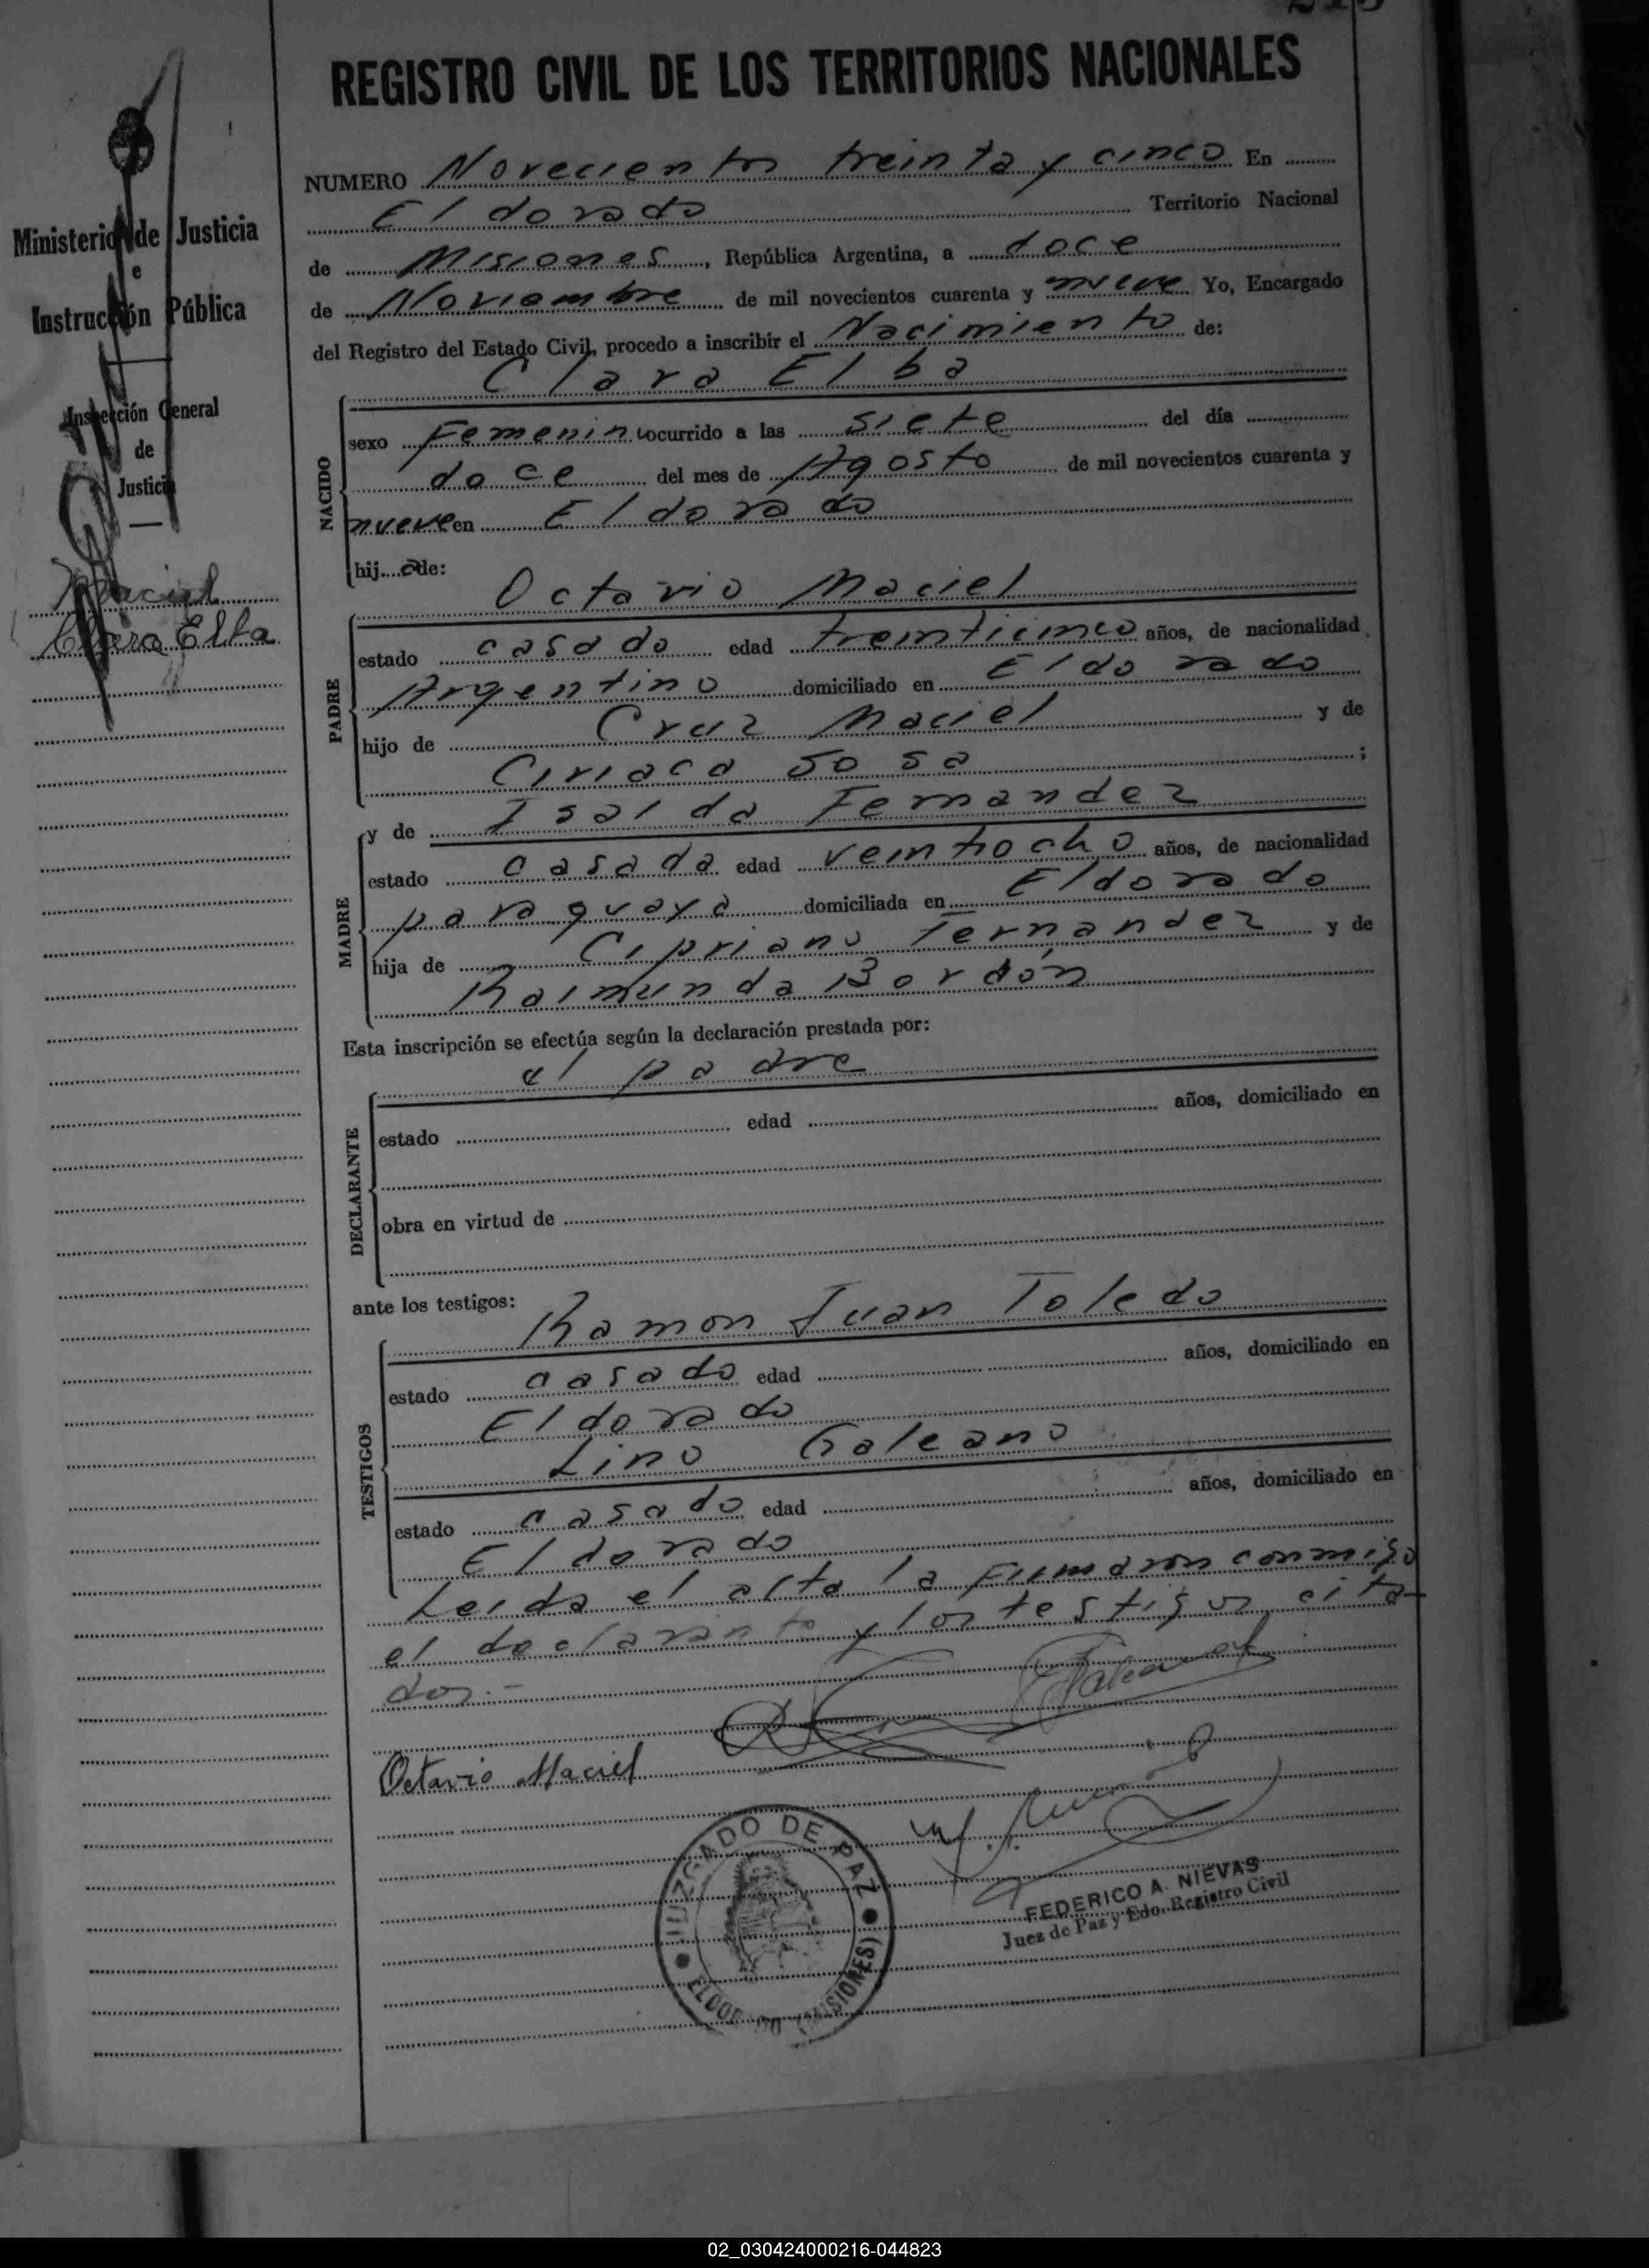 REGISTRO CIVIL DE LOS TERRITORIOS NACIONALES
Ministerio de Justicia
e
Instrucción Pública
Inspección General
de
Justicia
Maciel
Clara Elba
NUMERO Noveciento treinta y cinco En
Eldorado Territorio Nacional
de Misiones, República Argentina, a doce
de Noviembre de mil novecientos cuarenta y nueve Yo, Encargado
del Registro del Estado Civil, procedo a inscribir el Nacimiento de:
Clara Elba
NACIDO
sexo Femenino ocurrido a las siete del día
doce del mes de Agosto de mil novecientos cuarenta y
nueve en Eldorado
hij a de:
Octavio Maciel
PADRE
estado casado edad treinticinco años, de nacionalidad
Argentino domiciliado en Eldorado
hijo de Cruz Maciel y de
Ciriaca Sosa ;
y de Isalda Fernandez
MADRE
estado casada edad veintiocho años, de nacionalidad
paraguaya domiciliada en Eldorado
hija de Cipriano Fernandez y de
Raimunda Bordón
Esta inscripción se efectúa según la declaración prestada por:
el padre
DECLARANTE
estado edad años, domiciliado en
obra en virtud de
ante los testigos:
Ramon Juan Toledo
TESTIGOS
estado casado edad años, domiciliado en
Eldorado
Lino Galeano
estado casado edad años, domiciliado en
Eldorado
Leida el acta la firmaron conmigo
el declarante y los testigos cita-
dos.-
Octavio Maciel
JUZGADO DE PAZ
ELDORADO (MISIONES)
FEDERICO A. NIEVAS
Juez de Paz y Edo. Registro Civil
02_030424000216-044823